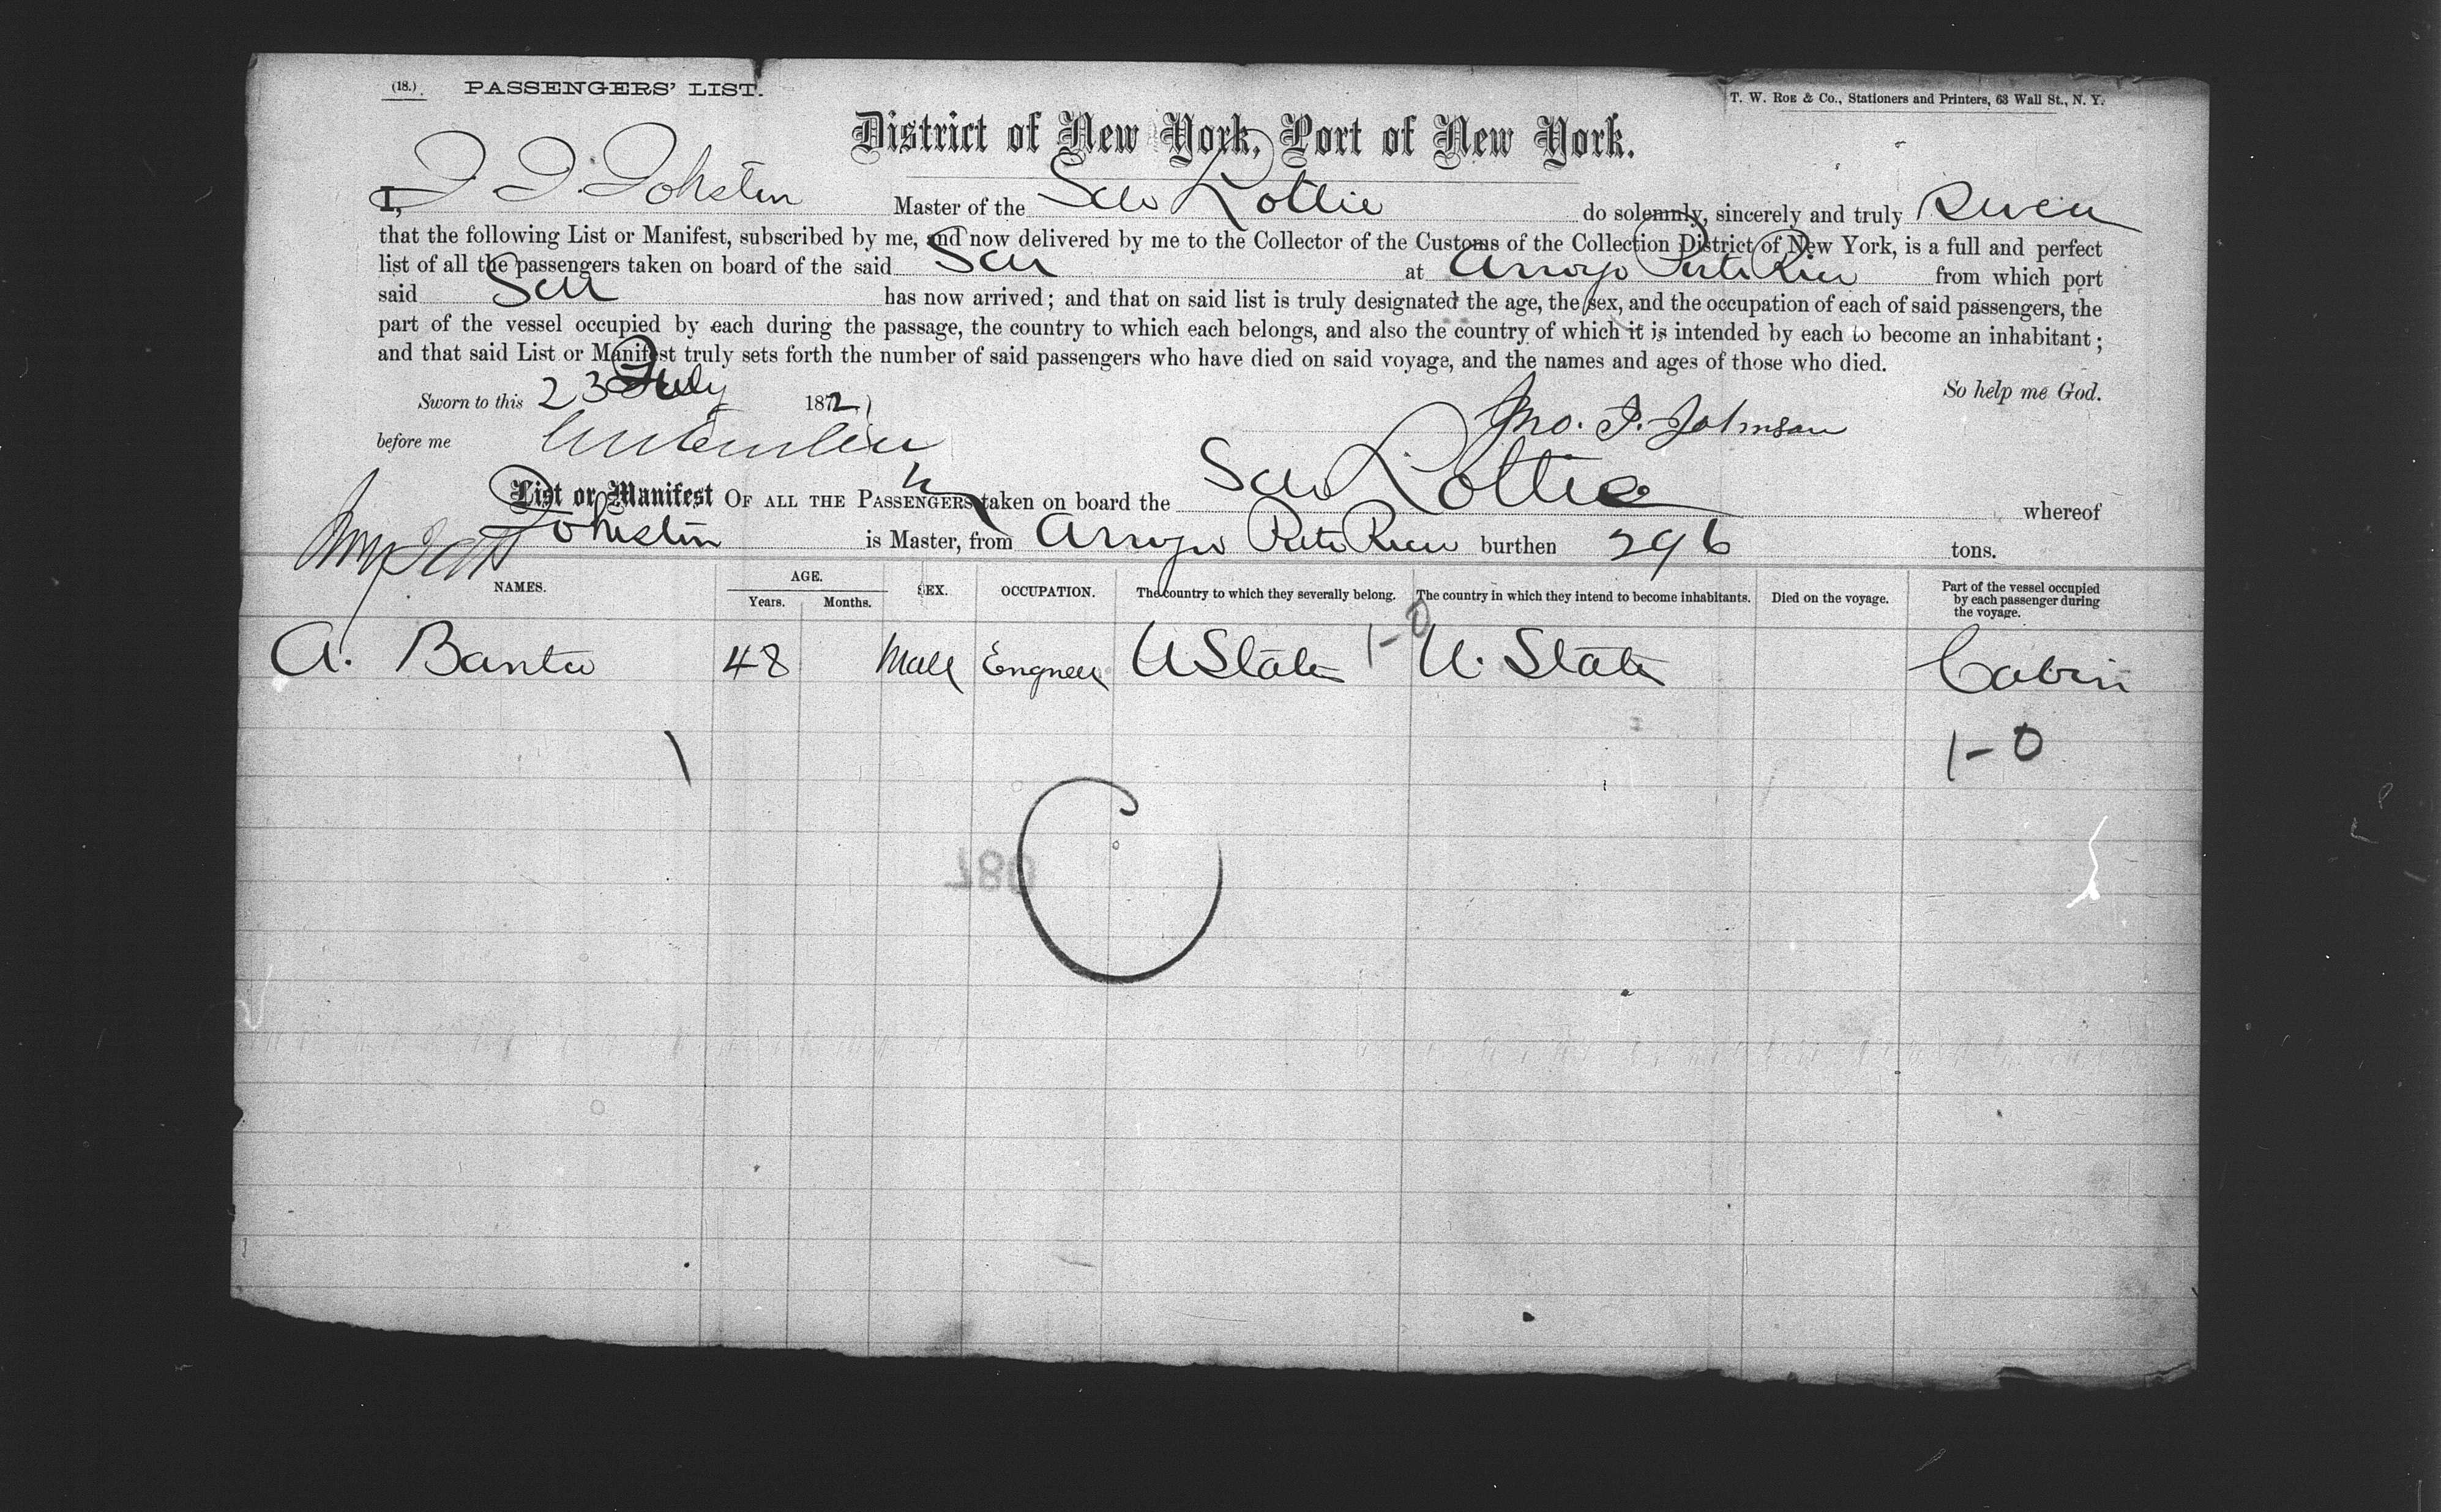 (18.) PASSENGERS' LIST. T. W. ROE & Co., Stationers and Printers, 63 Wall St., N. Y.
District of New York, Port of New York.
I, J. J. Johston Master of the Sch Lottie do solemnly, sincerely and truly Swear
that the following List or Manifest, subscribed by me, and now delivered by me to the Collector of the Customs of the Collection District of New York, is a full and perfect
list of all the passengers taken on board of the said Sch at Arroyo Porto Rico from which port
said Sch has now arrived; and that on said list is truly designated the age, the sex, and the occupation of each of said passengers, the
part of the vessel occupied by each during the passage, the country to which each belongs, and also the country of which it is intended by each to become an inhabitant;
and that said List or Manifest truly sets forth the number of said passengers who have died on said voyage, and the names and ages of those who died.
So help me God.
Sworn to this 23 July 1872
before me Jno. J. Johnson
List or Manifest OF ALL THE PASSENGERS taken on board the Sch Lottie whereof
Johston is Master, from Arroyo Porto Rico burthen 296 tons.
NAMES. AGE. Years. Months. SEX. OCCUPATION. The country to which they severally belong. The country in which they intend to become inhabitants. Died on the voyage. Part of the vessel occupied by each passenger during the voyage.
A. Banta 48 Male Engneer U States 1-0 U. States Cabin
1 1-0
087